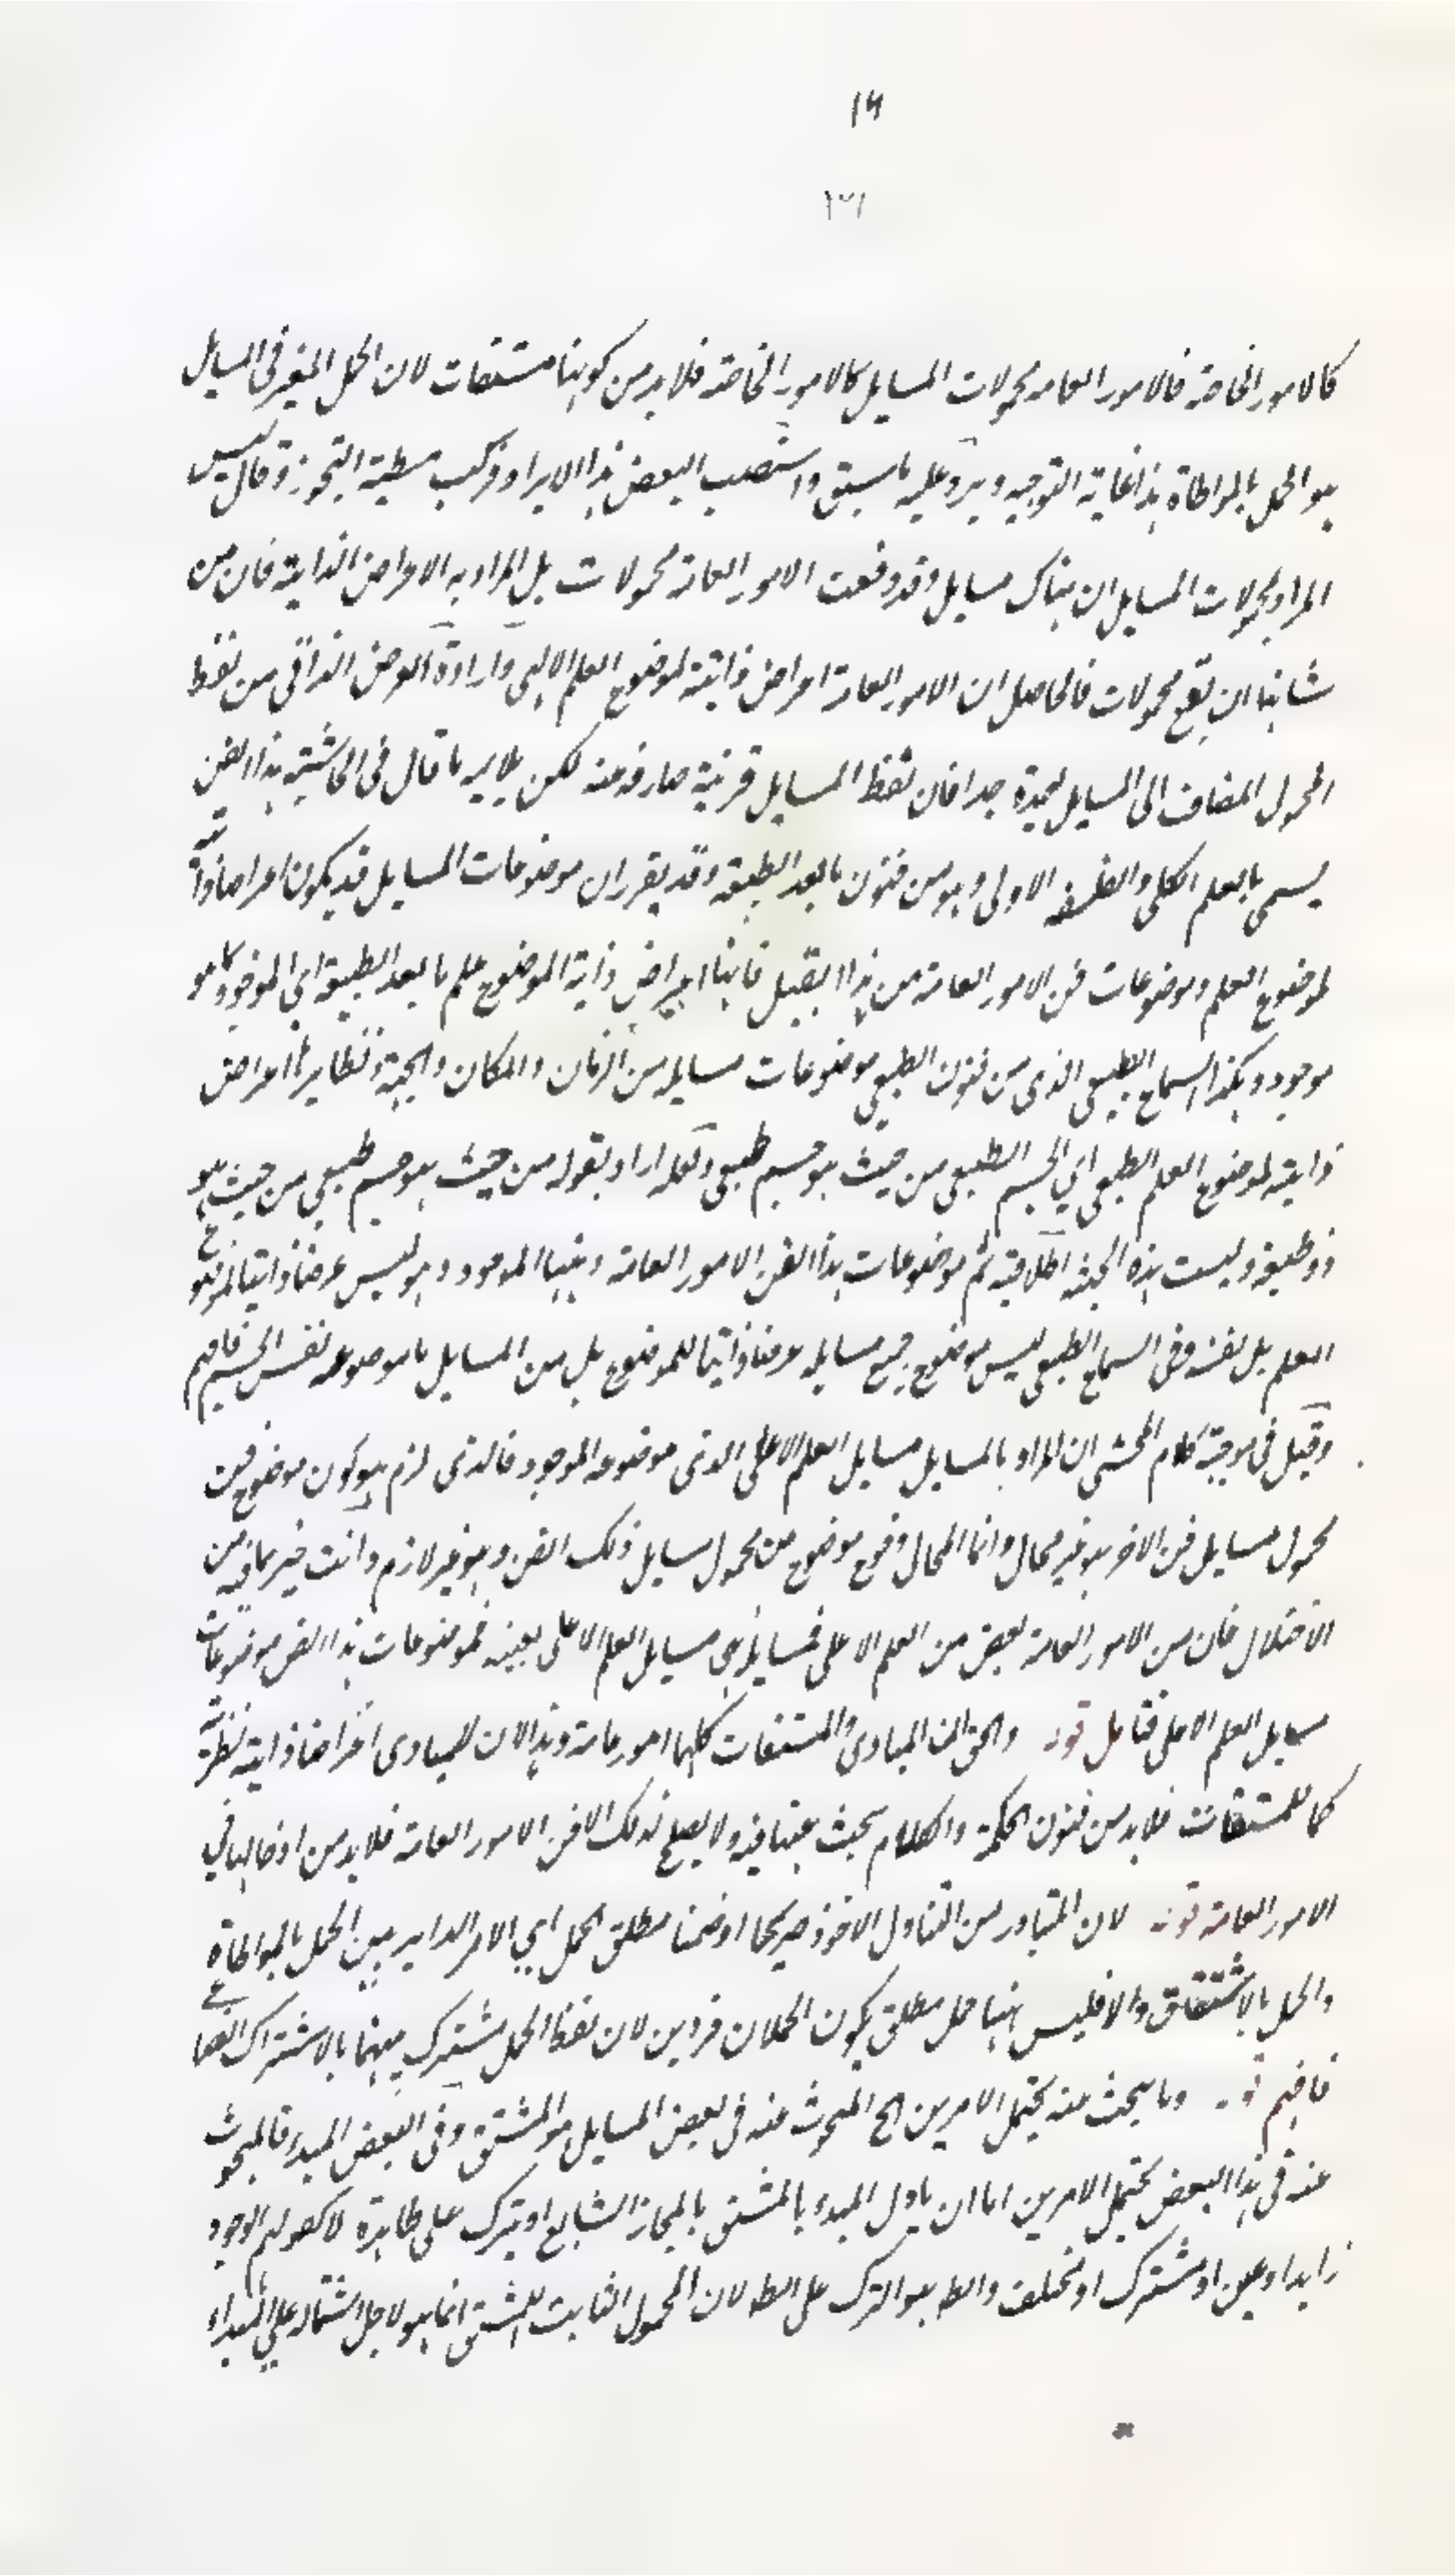 ١٦
كالامور الخاصة فالامور العامه محمولات المسايل كالامور الخاصة فلا بد من كونها مشتقات لان الحمل المعتبر فى المسايل
هو الحمل بالمواطاة هذا غاية التوجيه ويرد عليه ما سبق واستصعب البعض هذا الايراد فركب مطية التجوز وقال ليس
المراد بمحمولات المسايل ان هناك مسايل وقد وقعت الامور العامة محمولات بل المراد به الاعراض الذاتية فان من
شانها ان يقع محمولات فالحاصل ان الامور العامة اعراض ذاتية لموضوع العلم الالهى وارادة العرض الذاتى من لفظ
المحمول المضاف الى المسايل بعيدة جدا فان لفظ المسايل قرينة صارفة عنه لكن يلايمه ما قال فى الحاشية هذا الفن
يسمى بالعلم الكلى والفلسفه الاولى وهو من فنون ما بعد الطبيعة وقد يقرر ان موضوعات المسايل قد يكون اعراضا ذاتية
لموضوع العلم وموضوعات فن الامور العامة من هذا القبيل فانها اعراض ذاتية لموضوع علم ما بعد الطبيعة اى الموجود بما هو
موجود وهكذا السماع الطبيعى الذى من فنون الطبعى موضوعات مسايله من الزمان والمكان والجهة ونظايرها اعراض
ذاتية لموضوع العلم الطبعى اى الجسم الطبعى من حيث هو جسم طبعى ولعله اراد بقوله من حيث هو جسم طبيعى من حيث هو
ذو طبيعة وليست هذه الحيثية اطلاقية ثم موضوعات هذا الفن الامور العامة ومنها الموجود وهو ليس عرضا ذاتيا لموضوع
العلم بل نفسه وفى السماع الطبعى ليس موضوع جميع مسايله عرضا ذاتيا للموضوع بل من المسايل ما موضوعه نفس الجسم فافهم
وقيل فى توجيه كلام المحشى ان المراد بالمسايل مسايل العلم الاعلى الذى موضوعه الموجود فالذى لزم هو كون موضوع فن
محمول مسايل فن الاخر هو غير محال وانما المحال وقوع موضوع فن محمول مسايل ذلك الفن وهو غير لازم وانت خبير بما فيه من
الاختلال فان من الامور العامة بعض من العلم الاعلى فمسايله هى مسايل العلم الاعلى بعينه فموضوعات هذا الفن موضوعات
مسايل العلم الاعلى فتامل قوله والحق ان المبادى والمشتقات كلها امور عامة وهذا لان للمبادى اعراضا ذاتية نظرية
كما للمشتقات فلا بد من فنون الحكمة والكلام يبحث عنها فيه ولا يصلح لذلك الا فن الامور العامة فلا بد من ادخالها فى
الامور العامة قوله لان المتبادر من التناول الاخوذ صريحا او ضمنا مطلق الحمل اى الامر الداير بين الحمل بالمواطاة
والحمل بالاشتقاق والا فليس هنا حمل مطلق يكون الحملان فردين لان لفظ الحمل مشترك بينهما بالاشتراك
فافهم قوله وما يبحث عنه يحتمل الامرين الخ المبحوث عنه فى بعض المسايل هو المشتق وفى البعض المبدء فالمبحوث
عنه فى هذا البعض يحتمل الامرين اما ان ياول المبدء بالمشتق بالمجاز الشايع او يترك على ظاهره كقولهم الوجود
زايد او عين او مشترك او مختلف والظ هو الترك على الظ لان المحمول الثابت للمشتق انما هو لاجل اشتماله على المبداء